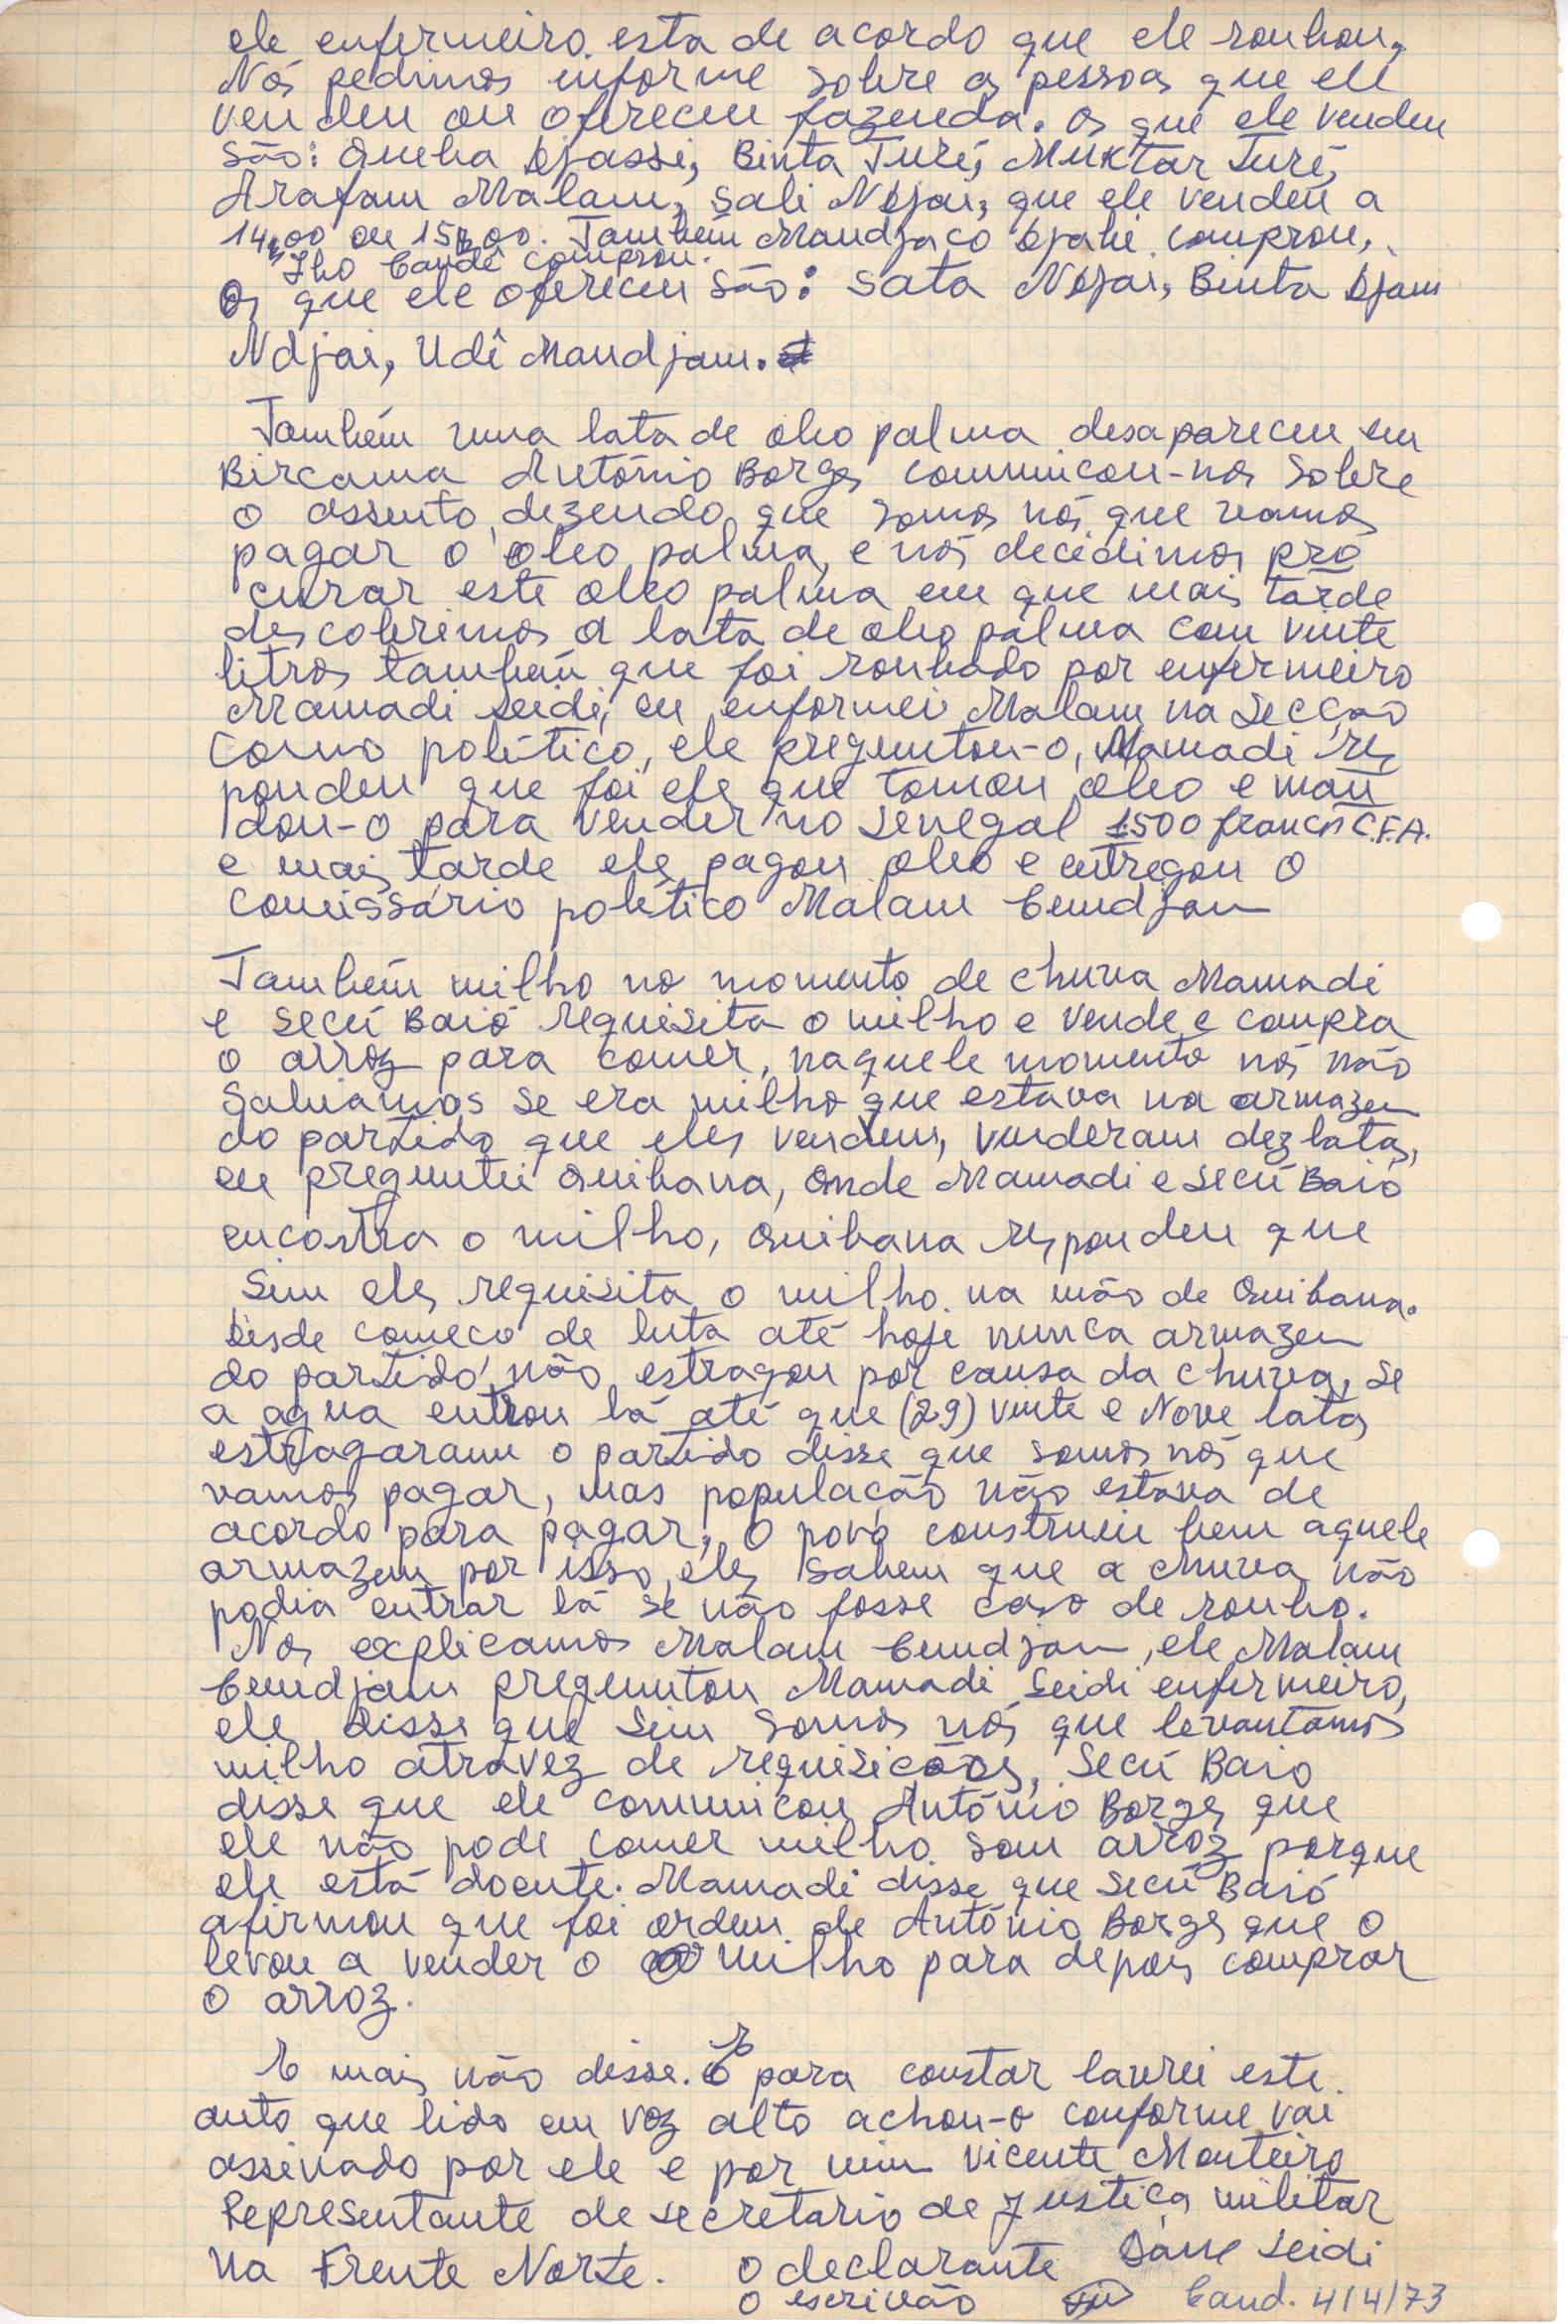 ele enfermeiro esta de acordo que ele roubou,
Nós pedimos informe sobre as pessoas que ele
vendeu ou ofereceu fazenda. os que ele vendeu
são: Queba Djassi, Binta Turé, Muktar Turé,
Arafam Malam, Sali Ndjai, que ele vendeu a
14$00 ou 15$00. Também Mandjaco Djabi comprou,
Iho Candê comprou.
Os que ele ofereceu são: Sata Ndjai, Binta Djam
Ndjai, Udê Mandjam.
Também uma lata de oleo palma desapareceu em
Bircama António Borges communicou-nos sobre
o assunto, dezendo que somos nós que vamos
pagar o oleo palma, e nós decidimos pro
curar este oleo palma em que mais tarde
descobrimos a lata de oleo palma com vinte
litros também que foi roubado por enfermeiro
Mamadi Seidi, eu enformei Malam na Secção
como político, ele preguntou-o, Mamadi res
pondeu que foi ele que tomou oleo e man
dou-o para vender no Senegal 1500 francos C.F.A.
e mais tarde ele pagou oleo e entregou o
comissário político Malam Cumdjam
Também milho no momento de chuva Mamadi
e Secú Baió requisita o milho e vende e compra
o arroz para comer, naquele momento nós não
sabiamos se era milho que estava na armazem
do partido que eles vendem, venderam dez latas,
eu preguntei Quibana, onde Mamadi e Secú Baió
encontra o milho, Quibana respondeu que
Sim eles requisita o milho na mão de Quibana.
Desde começo de luta até hoje nunca armazem
do partido não estragou por causa da chuva, se
a agua entrou lá até que (29) vinte e Nove latas
estragaram o partido disse que somos nós que
vamos pagar, mas população não estava de
acordo para pagar, o povo construiu bem aquele
armazem por isso eles sabem que a chuva não
podia entrar lá se não fosse caso de roubo.
Nos explicamos Malam Cumdjam, ele Malam
Cumdjam preguntou Mamadi Seidi enfermeiro,
ele disse que Sim somos nós que levantamos
milho atravez de requisições, Secú Baio
disse que ele comunicou António Borges que
ele não pode comer milho som arroz porque
ele está doente. Mamadi disse que Secú Baió
afirmou que foi ordem de António Borges que o
levou a vender o milho para depois comprar
o arroz.
E mais não disse. E para constar lavrei este
auto que lido em voz alto achou-o conforme vai
assinado por ele e por mim Vicente Monteiro
Representante de secretario de Justiça militar
na Frente Norte. O declarante Sáne Seidi
O escrivão Cand. 4/4/73